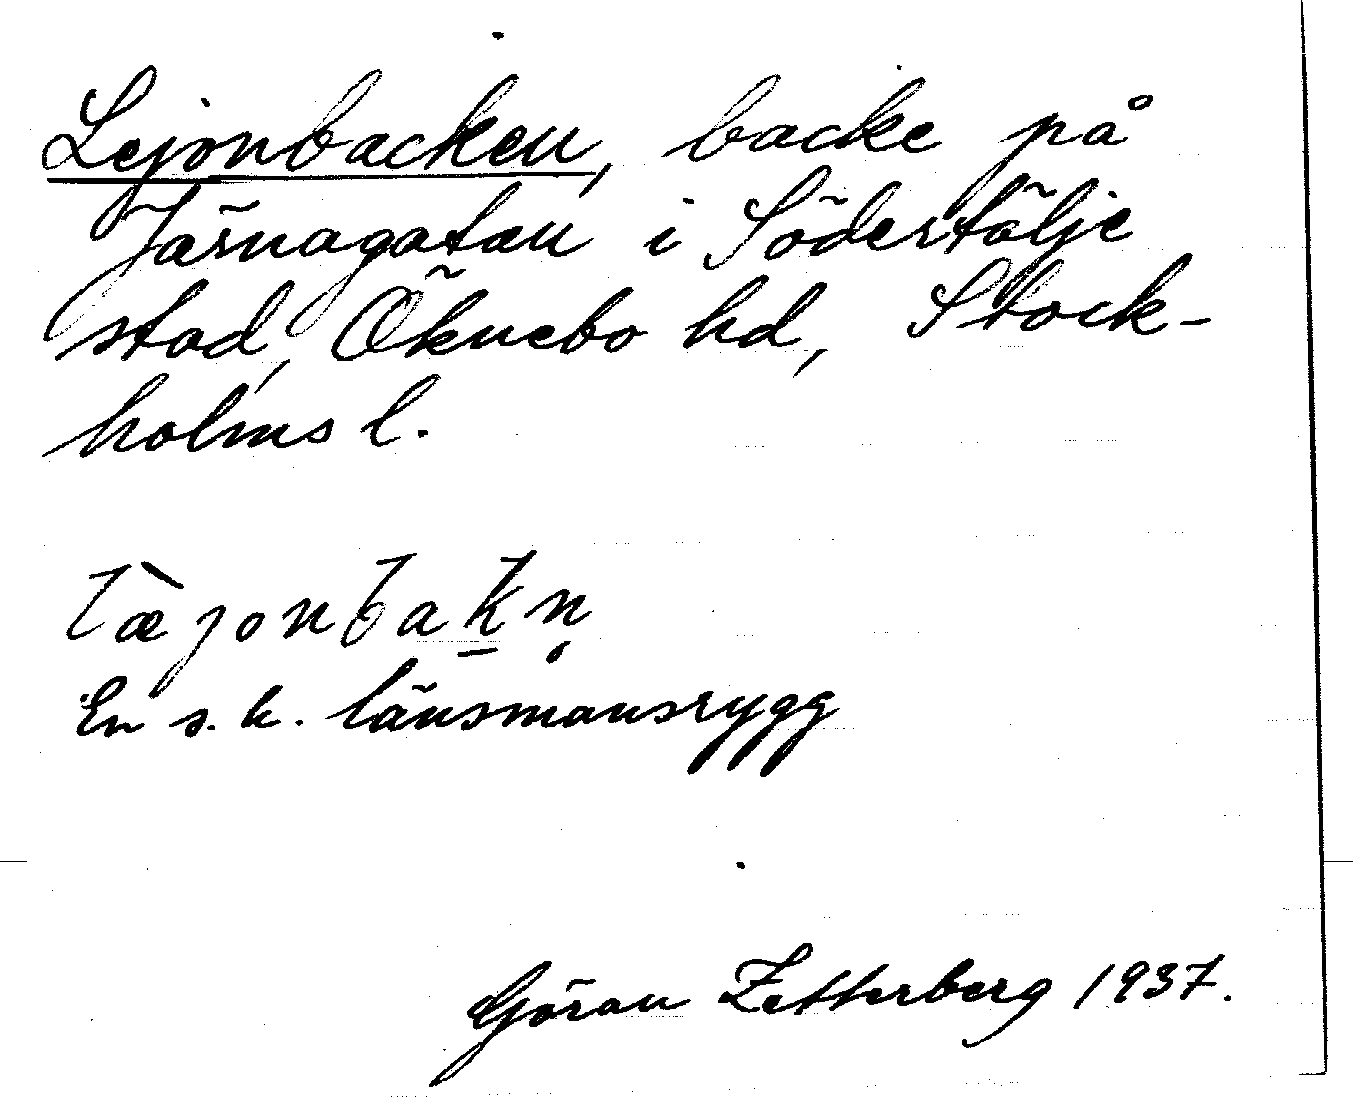 Lejonbacken, backe på
Järnagatan i Södertälje
stad, Öknebo hd, Stock-
holms l.
læ̀jonbak̲n̥
En s.k. länsmansrygg
Göran Zetterberg 1937.